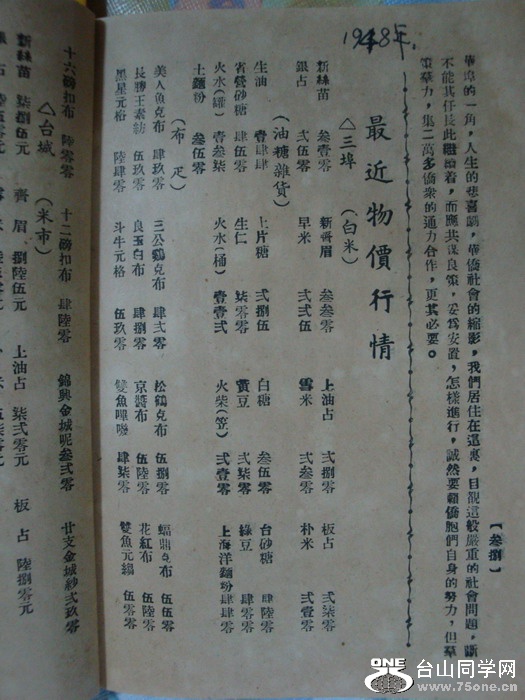 【叁捌】
華埠的一角，人生的悲喜劇，華僑社會的縮影，我們居住在這裏，目覩這般嚴重的社會問題，斷
不能其任長此繼續着，而應共謀良策，妥爲安置，怎樣進行，誠然要賴僑胞們自身的努力，但羣
策羣力，集二萬多僑衆的通力合作，更其必要。
1948年.
最近物價行情
△三埠 (白米)
新絲苗 叁壹零 新齊眉 叁叁零 上油占 弍捌零 板占 弍柒零
銀占 弍伍零 早米 弍弍伍 雪米 弍叁零 朴米 弍壹零
(油糖雜貨)
生油 壹肆肆 上片糖 弍捌伍 白糖 叁伍零 台砂糖 肆陸零
省營砂糖 肆伍零 生仁 柒零零 黃豆 弍柒零 綠豆 弍零零
火水(罐) 壹叁柒 火水(桶) 壹壹弍 火柴(笠) 弍壹零 上海洋麵粉 肆肆零
土麵粉 叁伍零
(布疋)
美人魚克布 肆玖零 三公鷄克布 肆弍零 松鶴克布 伍捌零 蝠鼎克布 伍伍零
長勝王素紡 伍玖零 良玉白布 肆捌零 京醬布 伍陸零 花紅布 伍陸零
黑星元格 陸肆零 斗牛元格 伍玖零 雙魚嗶嘰 肆柒零 雙魚元縐 伍零零
十六磅扣布 陸零零 十二磅扣布 肆陸零 錦興金城呢 叁弍零 廿支金城紗 弍玖零
△台城 (米市)
新絲苗 柒捌伍元 齊眉 捌陸伍元 上油占 柒弍零元 板占 陸捌零元
ONE 台山同学网
www.75one.cn